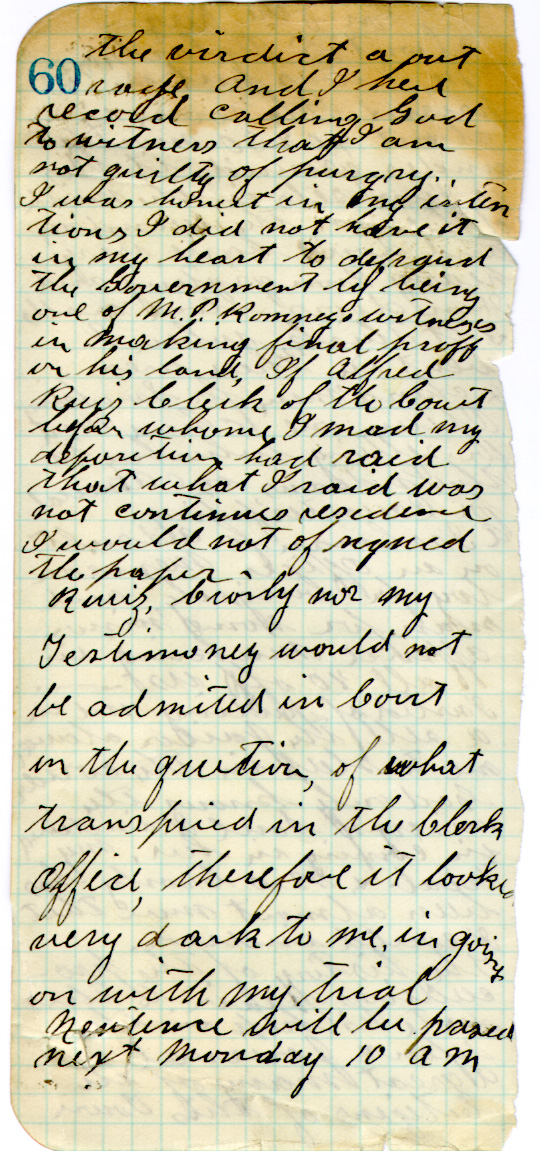 the virdict a out
60 rage, And I hed
record calling God
to witness that I am
not guilty of purgry..
I was honest in my inten
tions I did not have it
in my heart to defraud
the Government by being
one of M. P. Romneys witnesses
in making final proff
on his land, If Alfred
Ruiz Clerk of the Court
whome I mad my
deposition had said
that what I said was
not continues residence
I would not of signed
the paper
Ruiz, nor my
Testimoney would not
be admited in Court
in the quetion, of what
transpired in the Clerk
Office, therefore it looked
very dark to me, in going
on with my trial
Sentence will be pased
next Monday 10 a m